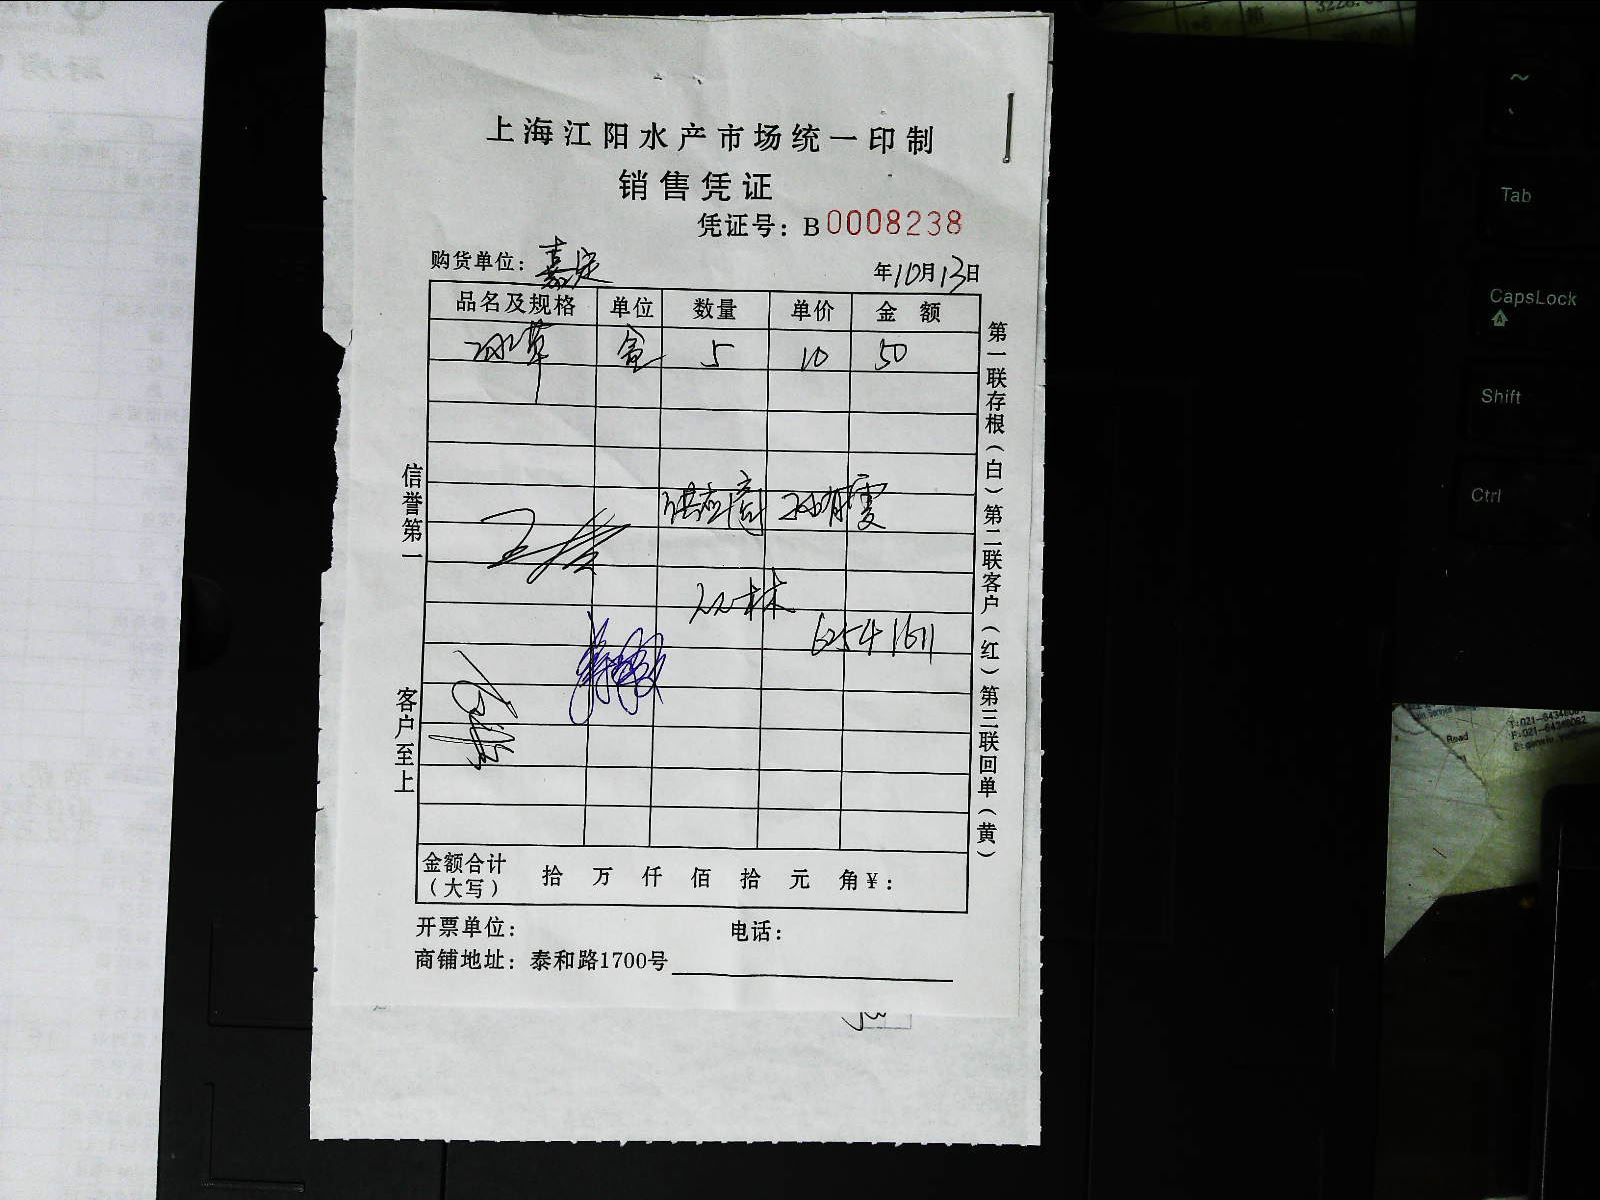 上海江阳水产市场统一印制
销售凭证
凭证号：B0008238
购货单位：嘉定 年10月13日
品名及规格 单位 数量 单价 金额
冰草 盒 5 10 50
供应商
6254 1611
信誉第一
客户至上
第一联存根（白）第二联客户（红）第三联回单（黄）
金额合计（大写） 拾 万 仟 佰 拾 元 角¥：
开票单位： 电话：
商铺地址：泰和路1700号
~
Tab
CapsLock
Shift
Ctrl
Road